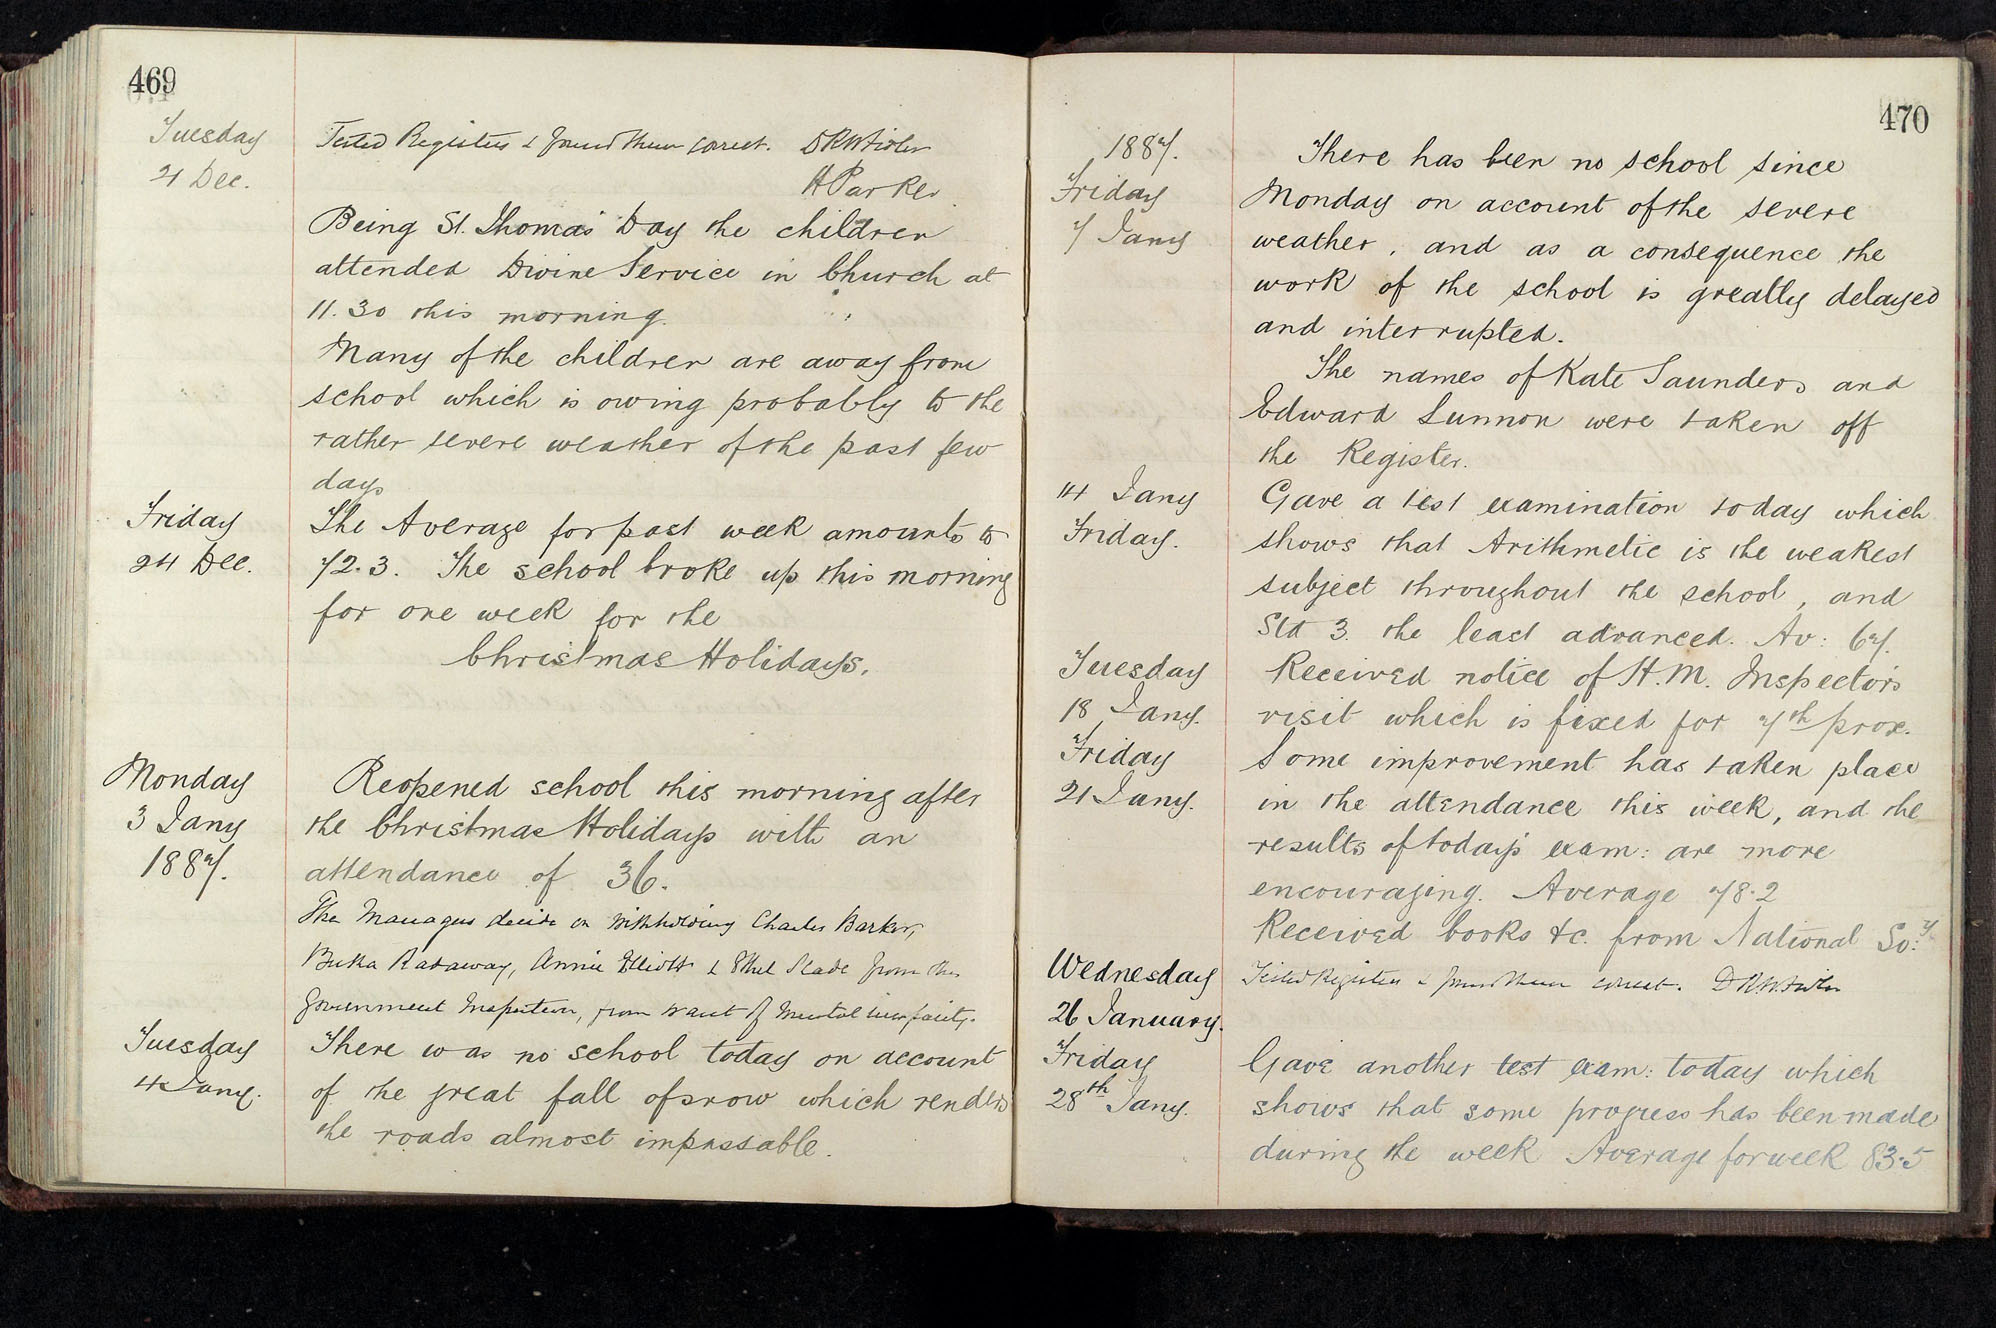 469
Tuesday
21 Dec.
Tested Registers & found them correct.
H Parker
Being St. Thomas' Day the children
attended Divine Service in Church at
11.30 this morning.
Many of the children are away from
school which is owing probably to the
rather severe weather of the past few
days
Friday
24 Dec.
The Average for past week amounts to
72.3. The school broke up this morning
for one week for the
Christmas Holidays.
Monday
3 Jany
1887.
Reopened school this morning after
the Christmas Holidays with an
attendance of 36.
The Managers decide on withholding Charles Barker,
Radaway, Annie Elliott & Ethel Slade from the
Government Inspection, from want of mental
Tuesday
4 Jany.
There was no school today on account
of the great fall of snow which renders
the roads almost impassable.
470
1887.
Friday
7 Jany
There has been no school since
Monday on account of the severe
weather, and as a consequence the
work of the school is greatly delayed
and interrupted.
The names of Kate Saunders and
Edward Lunnon were taken off
the Register.
14 Jany
Friday.
Gave a test examination today which
shows that Arithmetic is the weakest
subject throughout the school, and
Std 3. the least advanced. Av: 67.
Tuesday
18 Jany.
Received notice of H.M. Inspector's
visit which is fixed for 7th prox.
Friday
21 Jany.
Some improvement has taken place
in the attendance this week, and the
results of today's exam: are more
encouraging. Average 78.2
Received books &c. from National So:y
Wednesday
26 January.
Tested Registers & found them correct.
Friday
28th Jany.
Gave another test exam: today which
shows that some progress has been made
during the week Average for week 83.5